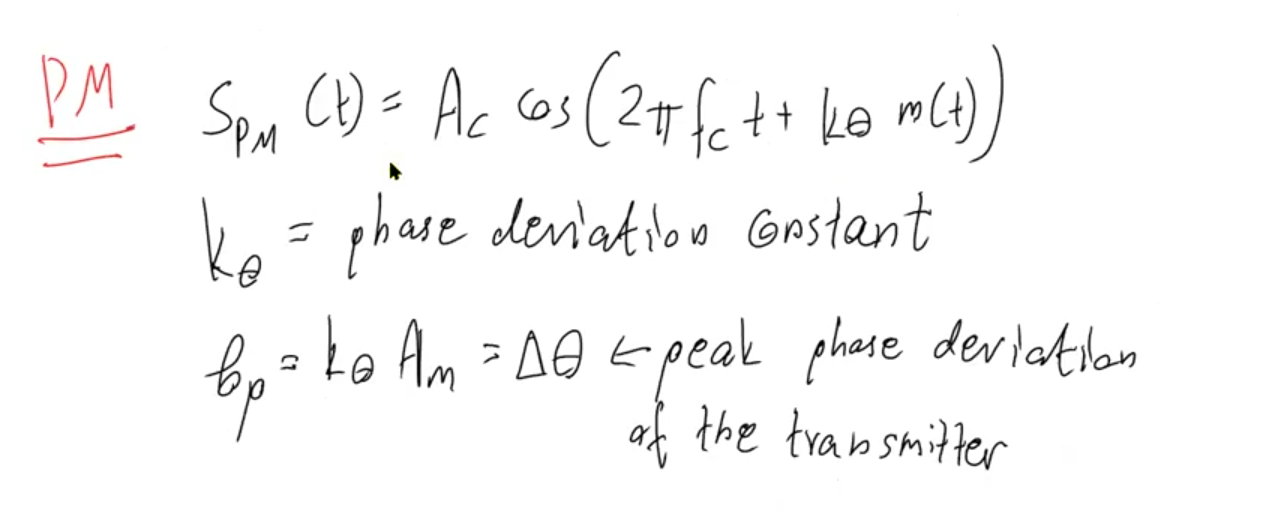 PM S_PM (t) = A_c cos(2π f_c t + k_θ m(t))
k_θ = phase deviation constant
β_p = k_θ A_m = Δθ ← peak phase deviation
of the transmitter